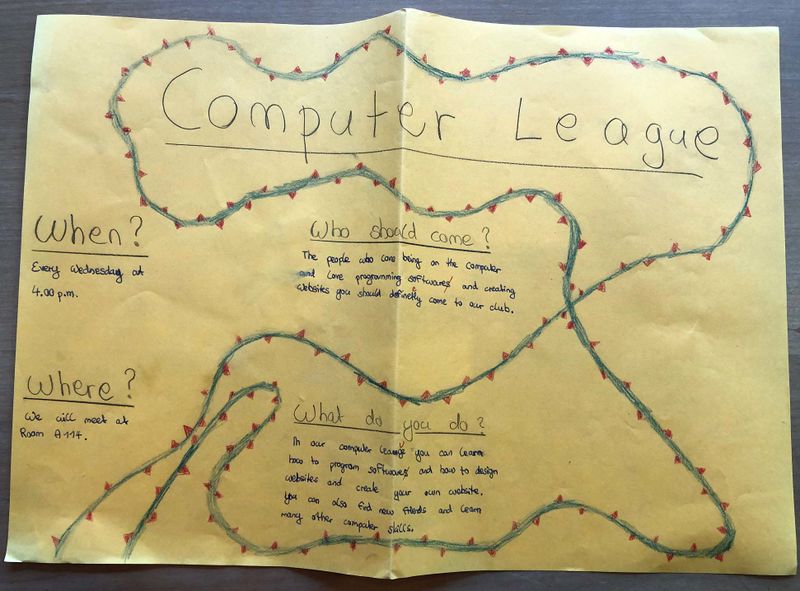 Computer League
When?
Every Wednesday at
4.00 p.m.
Who should come?
The people who love being on the computer
and love programming softwares and creating
websites you should definetly come to our club.
Where?
We will meet at
Room A114.
What do you do?
In our computer league you can learn
how to program softwares and how to design
websites and create your own website.
You can also find new friends and learn
many other computer skills.